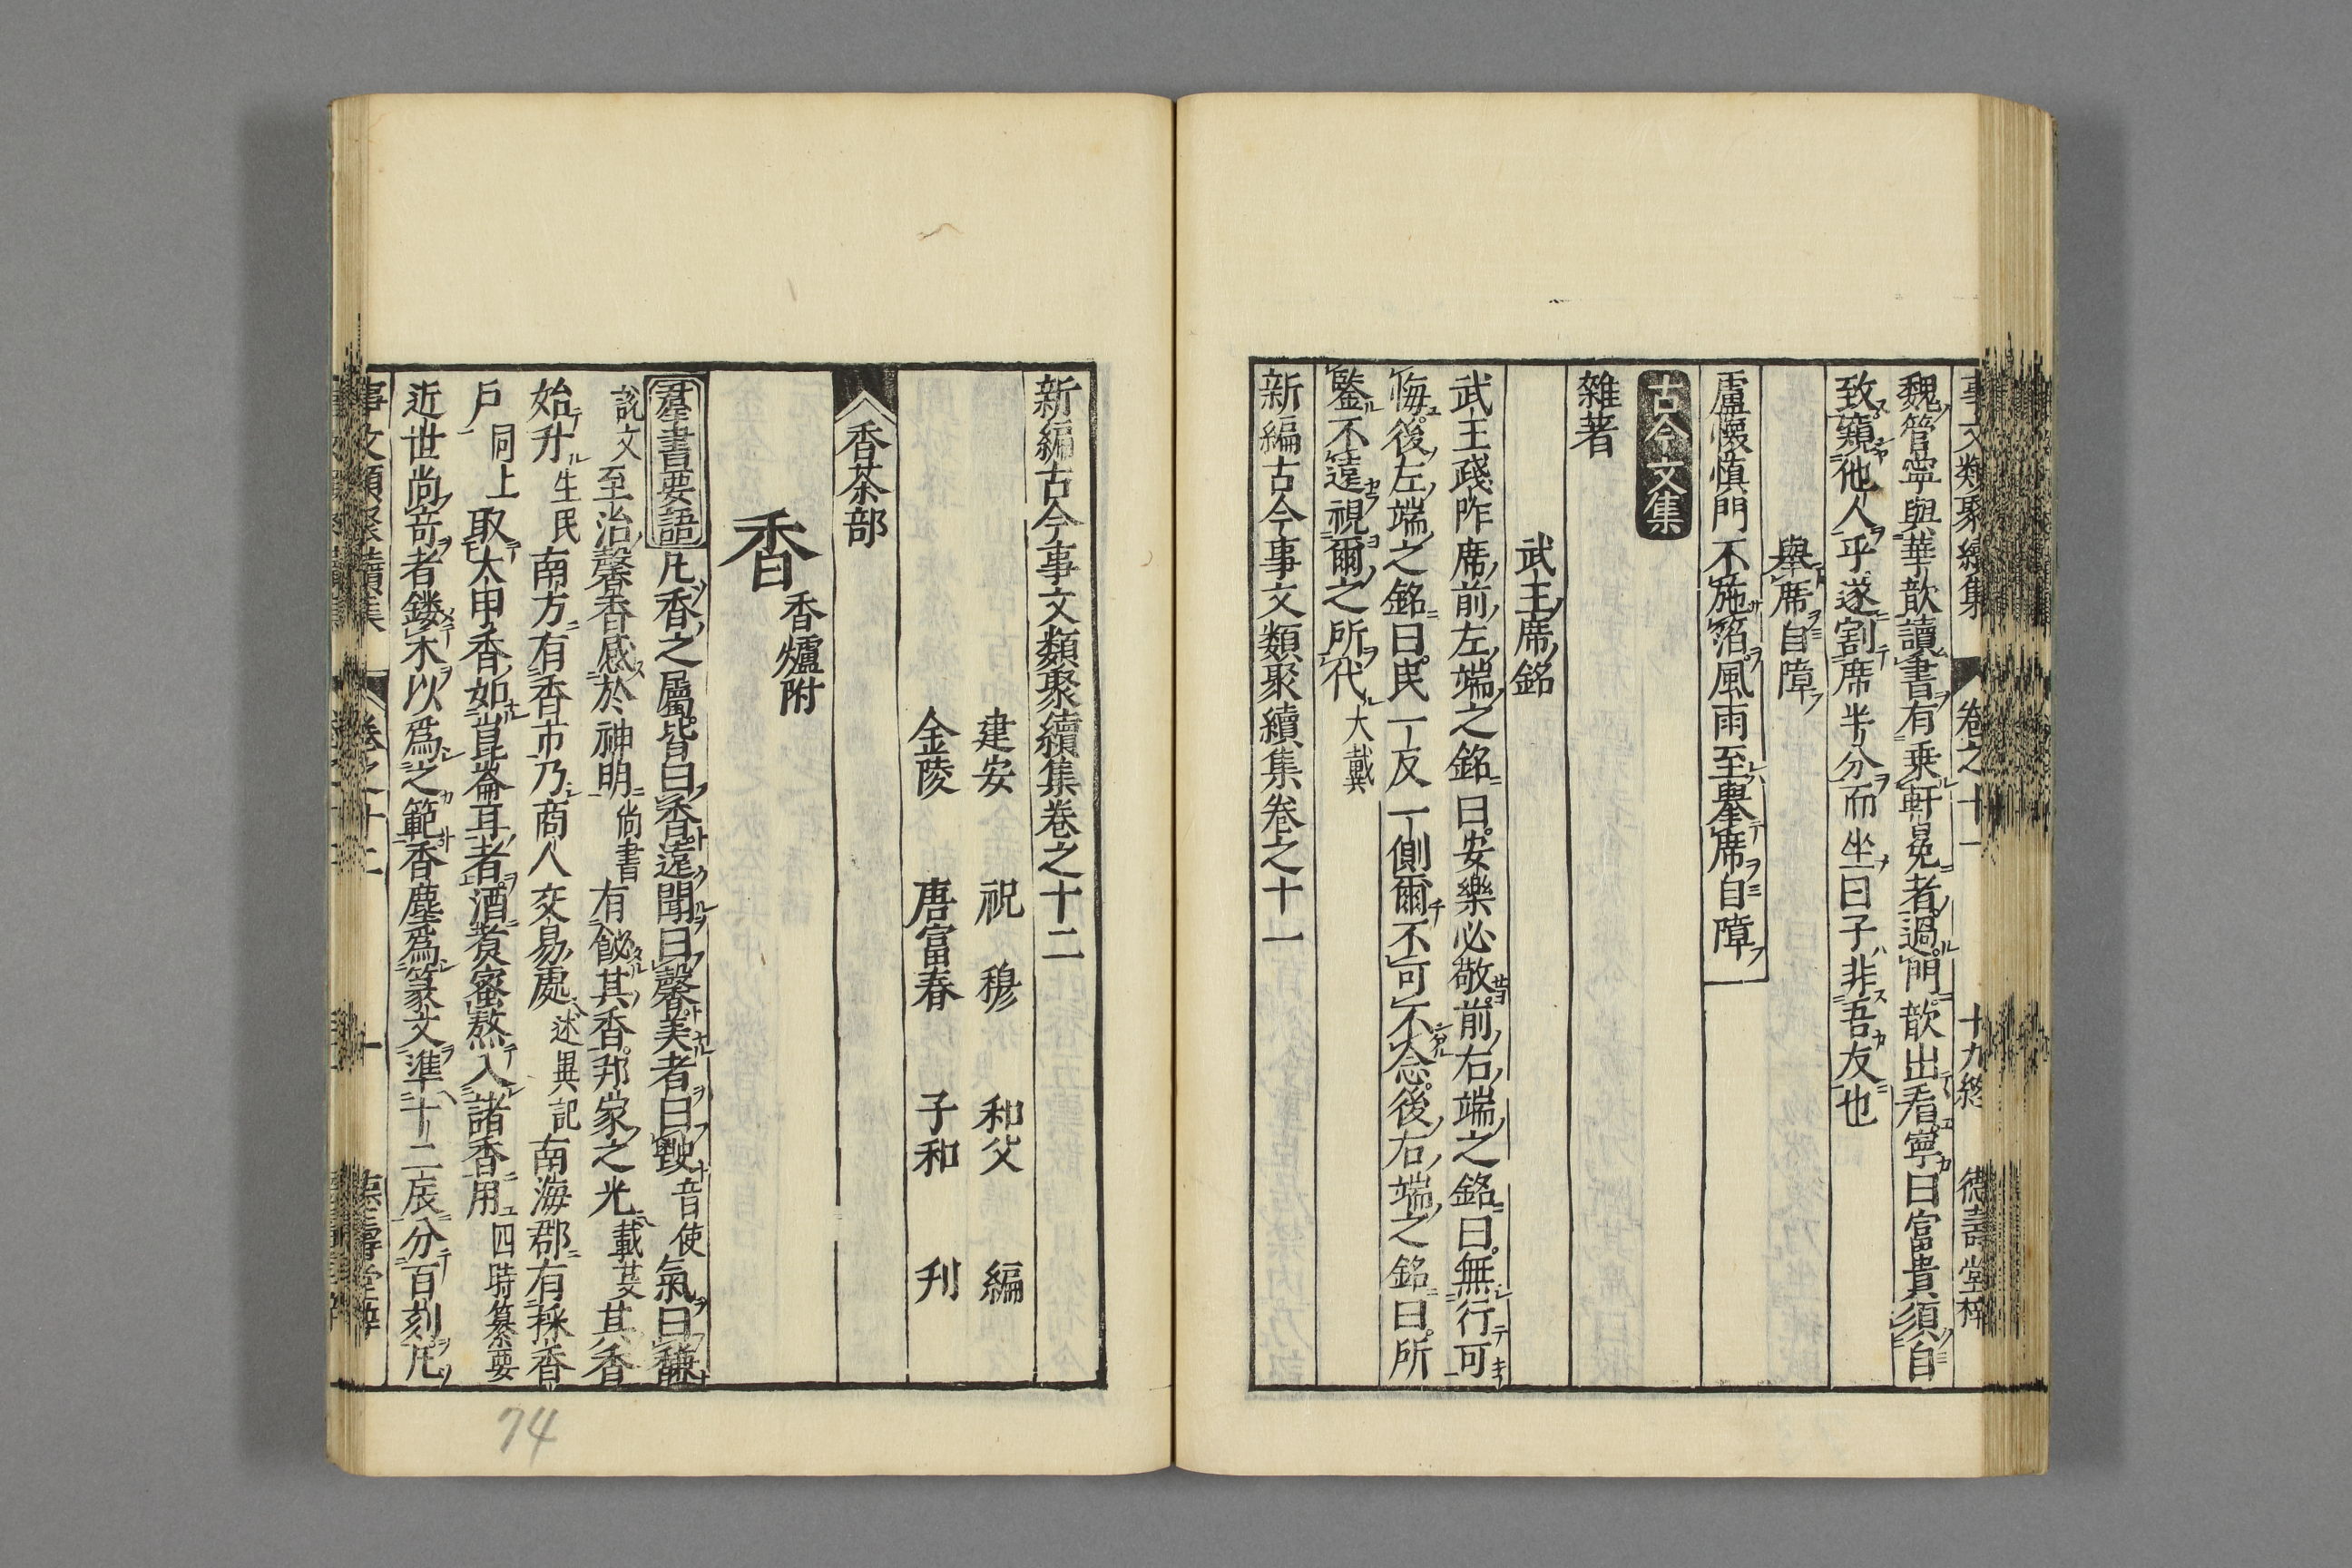 事文類聚續集 卷之十一 十九終 德壽堂梓
魏管寧與華歆讀書有乗軒冕者過門歆出看寧曰富貴須自
致窺他人乎遂割席半分而坐曰子非吾友也
舉席自障
盧懷慎門不施箔風雨至舉席自障
古今文集
雜著
武王席銘
武王踐阼席前左端之銘曰安樂必敬前右端之銘曰無行可
悔後左端之銘曰民一反一側爾不可不念後右端之銘曰所
鑒不遠視爾之所代 大戴
新編古今事文類聚續集卷之十一
新編古今事文類聚續集卷之十二
建安 祝 穆 和父 編
金陵 唐富春 子和 刋
香茶部
香 香爐附
羣書要語 凢香之屬皆曰香遠聞曰馨美者曰䭲音使氣曰馦
説文 至治馨香感於神明 尚書 有飶其香邦家之光 載芟 其香
始升 生民 南方有香市乃商人交易處 述異記 南海郡有採香
戸 同上 取大甲香如崑崙耳者酒煮蜜熬入諸香用 四時纂要
近世尚竒者鏤木以爲之範香塵爲篆文準十二辰分百刻凢
事文類聚續集 卷之十二 一 德壽堂梓
74